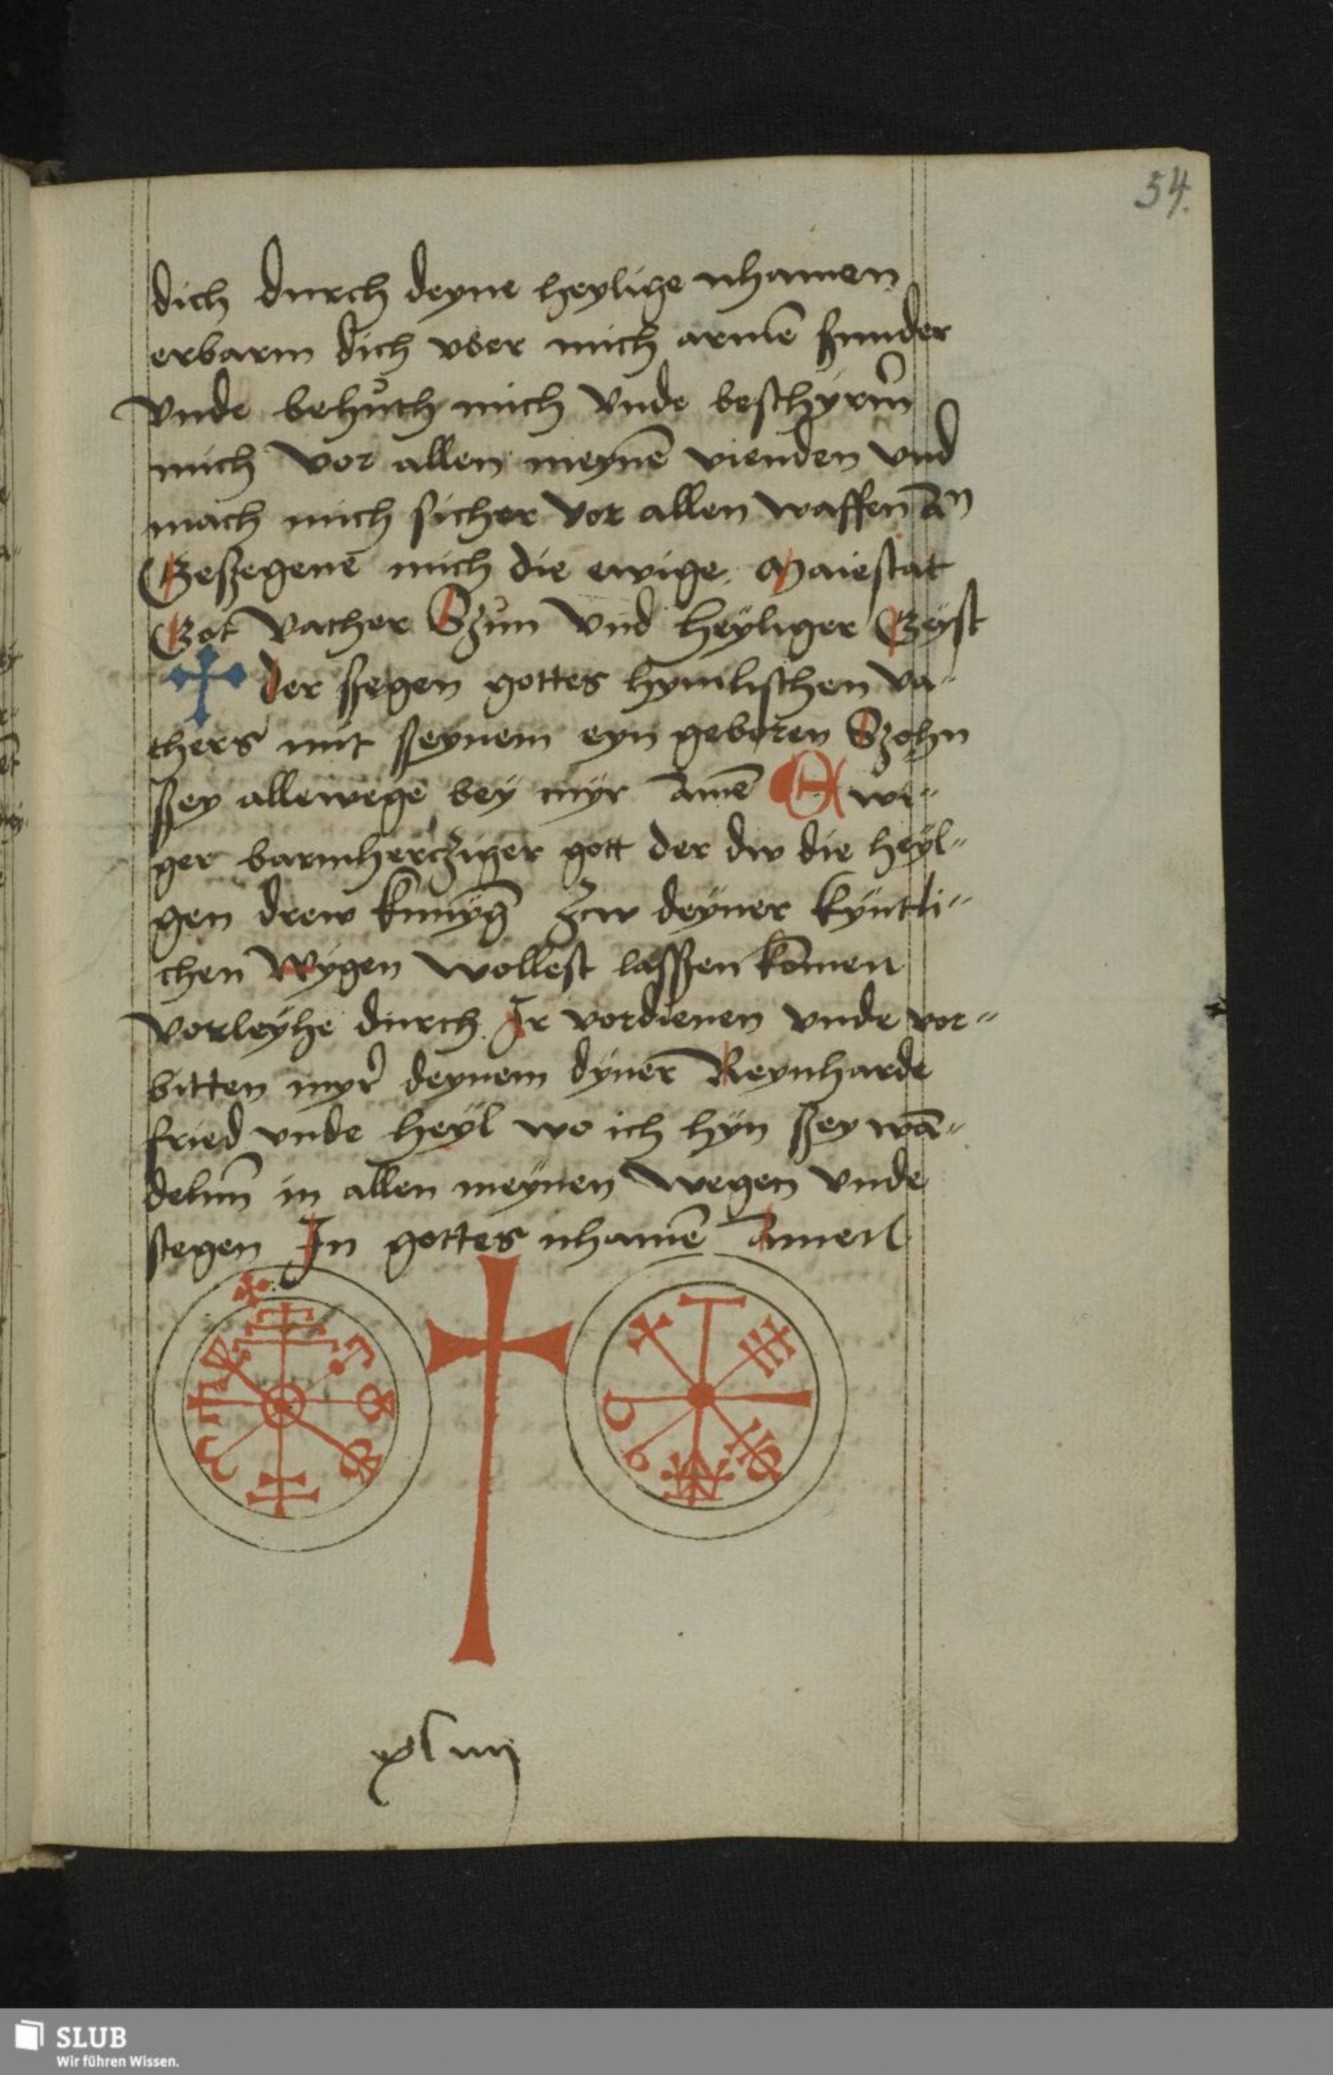 54.
dich durch deyne heylige nhamen
erbarm dich vber mich armē sunder
Vnde behůth mich Vnde beschyrm̄
mich Vor allen meynē vienden Vnd
mach mich sicher Vor allen waffen
Geszegene mich die ewige Maiestat
Got Vather Szůn Vnd Heyliger Geyst
✝ der szegen gottes hymlischen Va-
thers mit szeynem eyn geboren Szohn
szey allewege bey myr Amē Ewi-
ger barmhercziger gott der dw die heyl-
gen drew kunyḡ Zcw deyner kyntli-
chen Wygen Wollest lasszen komen
Vorleyhe durch Ir vordienen vnde vor-
bitten myr deynem dyner Reynharde
fried vnde heyl wo ich hyn szey wā-
deln̄ in allen meynen Wegen Vnde
stegen In gottes nhamē Amen
xliiij
SLUB
Wir führen Wissen.